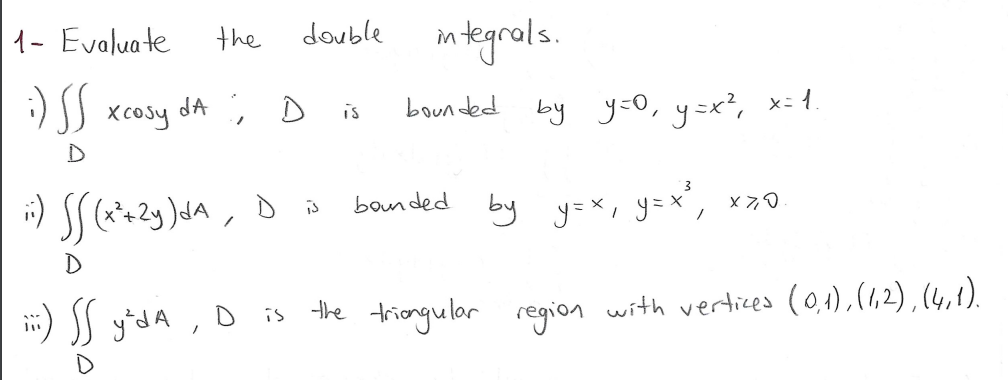 1- Evaluate the double integrals.
i) ∬ x cosy dA ; D is bounded by y=0, y=x², x=1.
D
ii) ∬ (x²+2y)dA , D is bounded by y=x, y=x³, x⩾0.
D
iii) ∬ y²dA , D is the triangular region with vertices (0,1), (1,2), (4,1).
D